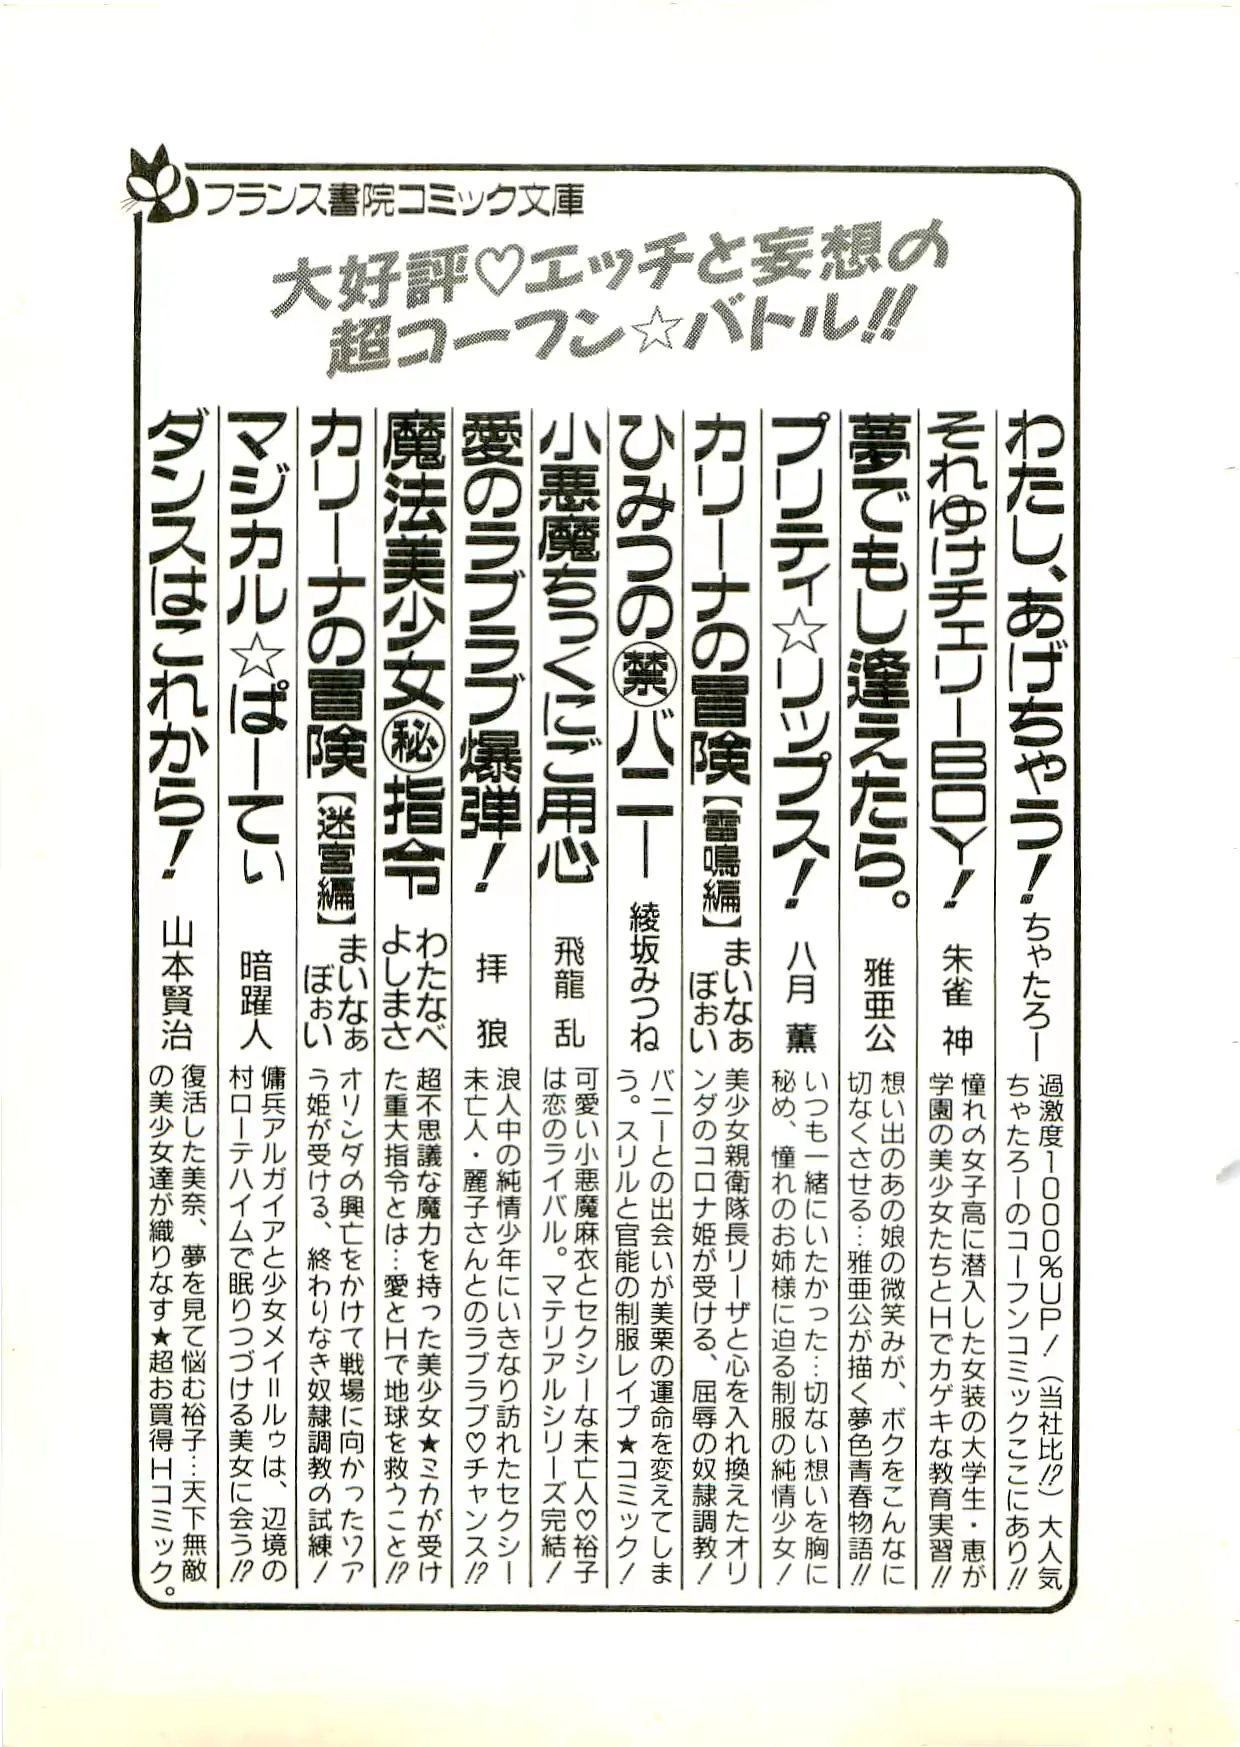 フランス書院コミック文庫
大好評♡エッチと妄想の
超コーフン☆バトル!!
わたし、あげちゃう!
ちゃたろー
過激度1000%UP!(当社比!?)大人気
ちゃたろーのコーフンコミックここにあり!!
それゆけチェリーBOY!
朱雀 神
憧れの女子高に潜入した女装の大学生・恵が
学園の美少女たちとHでカゲキな教育実習!!
夢でもし逢えたら。
雅亜公
想い出のあの娘の微笑みが、ボクをこんなに
切なくさせる…雅亜公が描く夢色青春物語!!
プリティ☆リップス!
八月 薫
いつも一緒にいたかった…切ない想いを胸に
秘め、憧れのお姉様に迫る制服の純情少女!
カリーナの冒険【雷鳴編】
まいなぁ
ぼぉい
美少女親衛隊長リーザと心を入れ換えたオリ
ンダのコロナ姫が受ける、屈辱の奴隷調教!
ひみつの㊙バニー
綾坂みつね
バニーとの出会いが美栗の運命を変えてしま
う。スリルと官能の制服レイプ★コミック!
小悪魔ちっくにご用心
飛龍 乱
可愛い小悪魔麻衣とセクシーな未亡人♡裕子
は恋のライバル。マテリアルシリーズ完結!
愛のラブラブ爆弾!
拝 狼
浪人中の純情少年にいきなり訪れたセクシー
未亡人・麗子さんとのラブラブ♡チャンス!?
魔法美少女㊙指令
わたなべ
よしまさ
超不思議な魔力を持った美少女★ミカが受け
た重大指令とは…愛とHで地球を救うこと!?
カリーナの冒険【迷宮編】
まいなぁ
ぼぉい
オリンダの興亡をかけて戦場に向かったリア
ラ姫が受ける、終わりなき奴隷調教の試練!
マジカル☆ぱーてぃ
暗躍人
傭兵アルガイアと少女メイ=ルゥは、辺境の
村ローテハイムで眠りつづける美女に会う!?
ダンスはこれから!
山本賢治
復活した美奈、夢を見て悩む裕子…天下無敵
の美少女達が織りなす★超お買得Hコミック。